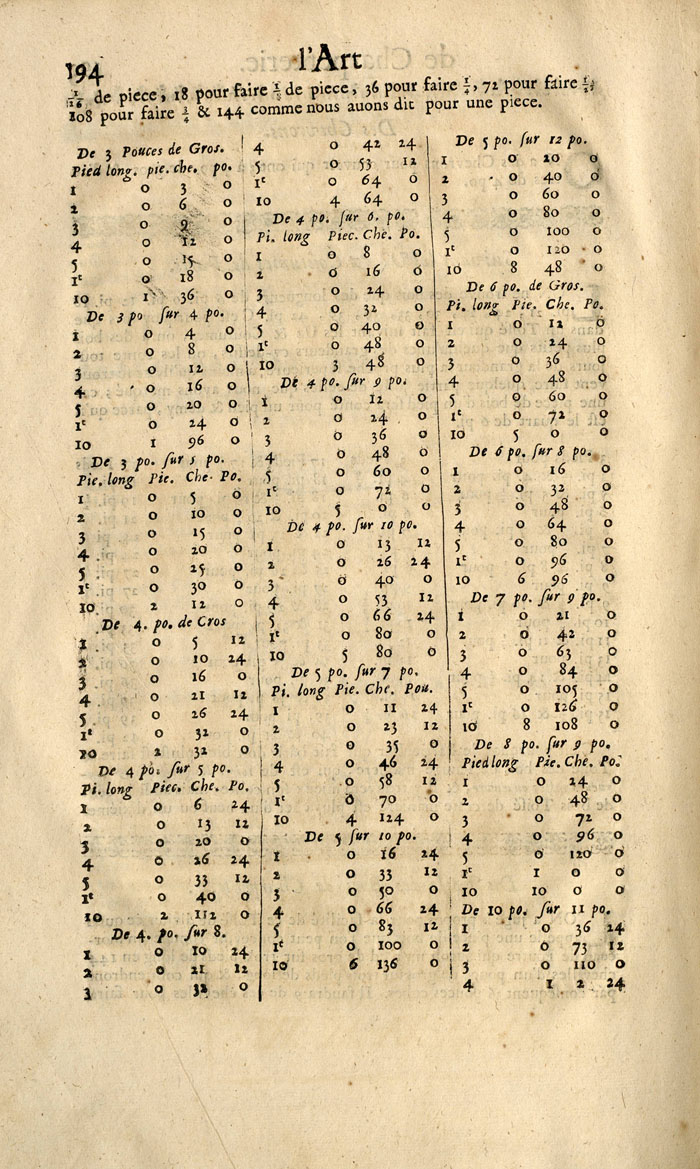 194
l'Art
1/16 de piece, 18 pour faire 1/8 de piece, 36 pour faire 1/4, 72 pour faire 1/2,
108 pour faire 3/4 & 144 comme nous auons dit pour une piece.
De 3 Pouces de Gros.
Pied long. pie. che. po.
1 0 3 0
2 0 6 0
3 0 9 0
4 0 12 0
5 0 15 0
1t 0 18 0
10 1 36 0
De 3 po sur 4 po.
1 0 4 0
2 0 8 0
3 0 12 0
4 0 16 0
5 0 20 0
1t 0 24 0
10 1 96 0
De 3 po. sur 5 po.
Pie. long Pie. Che. Po.
1 0 5 0
2 0 10 0
3 0 15 0
4 0 20 0
5 0 25 0
1t 0 30 0
10 2 12 0
De 4. po. de Cros
1 0 5 12
2 0 10 24
3 0 16 0
4 0 21 12
5 0 26 24
1t 0 32 0
10 2 32 0
De 4 po: sur 5 po.
Pi. long Piec. Che. Po.
1 0 6 24
2 0 13 12
3 0 20 0
4 0 26 24
5 0 33 12
1t 0 40 0
10 2 112 0
De 4. po. sur 8.
1 0 10 24
2 0 21 12
3 0 32 0
4 0 42 24
5 0 53 12
1t 0 64 0
10 4 64 0
De 4 po. sur 6. po.
Pi. long Piec. Che. Po.
1 0 8 0
2 0 16 0
3 0 24 0
4 0 32 0
5 0 40 0
1t 0 48 0
10 3 48 0
De 4 po. sur 9 po.
1 0 12 0
2 0 24 0
3 0 36 0
4 0 48 0
5 0 60 0
1t 0 72 0
10 5 0 0
De 4 po. sur 10 po.
1 0 13 12
2 0 26 24
3 0 40 0
4 0 53 12
5 0 66 24
1t 0 80 0
10 5 80 0
De 5 po. sur 7 po.
Pi. long Pie. Che. Pou.
1 0 11 24
2 0 23 12
3 0 35 0
4 0 46 24
5 0 58 12
1t 0 70 0
10 4 124 0
De 5 sur 10 po.
1 0 16 24
2 0 33 12
3 0 50 0
4 0 66 24
5 0 83 12
1t 0 100 0
10 6 136 0
De 5 po. sur 12 po.
1 0 20 0
2 0 40 0
3 0 60 0
4 0 80 0
5 0 100 0
1t 0 120 0
10 8 48 0
De 6 po. de Gros.
Pi. long Pie. Che. Po.
1 0 12 0
2 0 24 0
3 0 36 0
4 0 48 0
5 0 60 0
1t 0 72 0
10 5 0 0
De 6 po. sur 8 po.
1 0 16 0
2 0 32 0
3 0 48 0
4 0 64 0
5 0 80 0
1t 0 96 0
10 6 96 0
De 7 po. sur 9 po.
1 0 21 0
2 0 42 0
3 0 63 0
4 0 84 0
5 0 105 0
1t 0 126 0
10 8 108 0
De 8 po. sur 9 po.
Pied long Pie. Che. Po.
1 0 24 0
2 0 48 0
3 0 72 0
4 0 96 0
5 0 120 0
1t 1 0 0
10 10 0 0
De 10 po. sur 11 po.
1 0 36 24
2 0 73 12
3 0 110 0
4 1 2 24